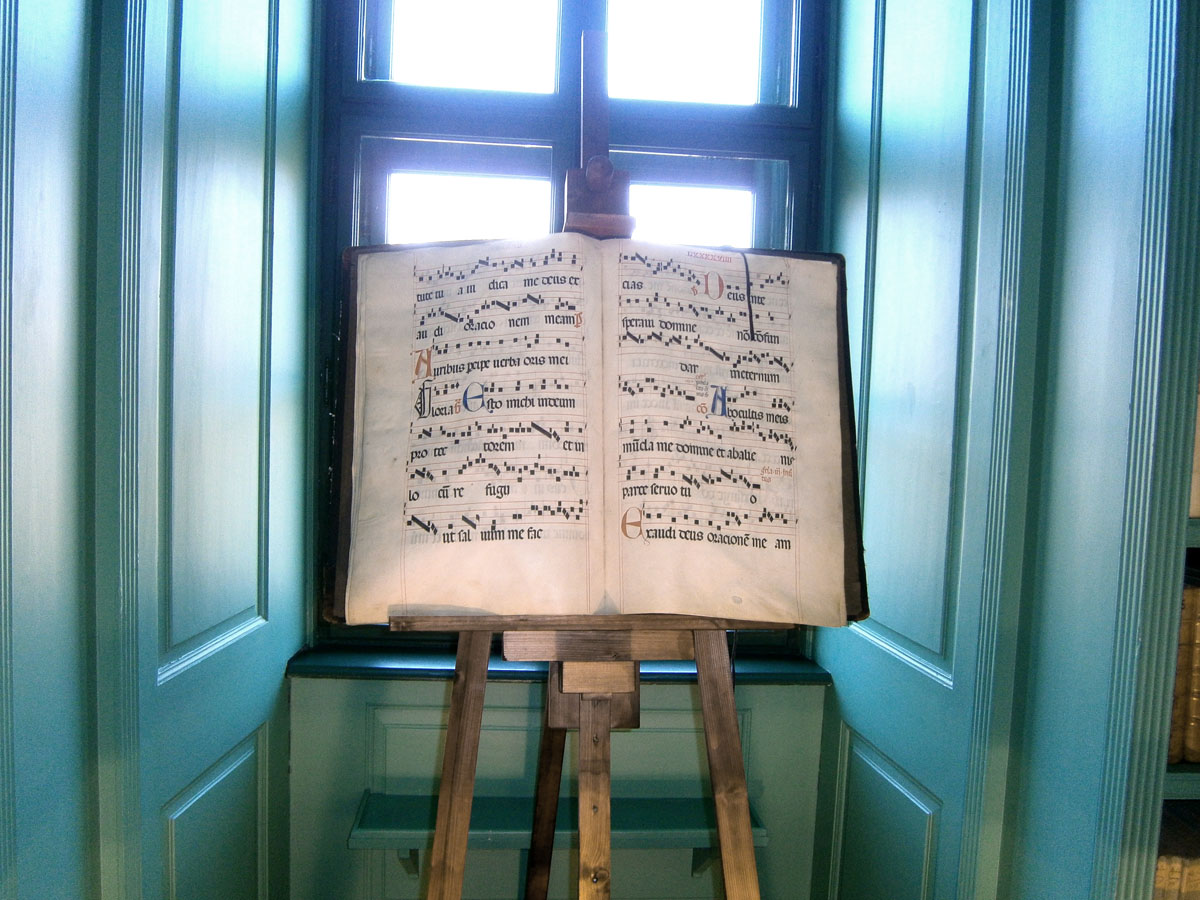 tute tu a iu dica me deus et
au di oracio nem meam p
Auribus peipe uerba oris mei
Gloria Esto michi indeum
pro tec torem et in
lo cū re fugii
ut sal uum me fac
cias Deus inte
speraui domine nō cōfun
dar ineternum
cō Ab ocultis meis
mūda me domine et abalie nis
parce seruo tu o
Exaudi deus oracionē me am